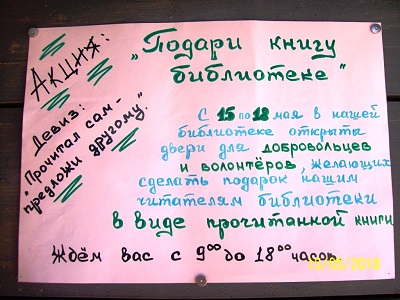 Акция:
„Подари книгу
библиотеке"
Девиз:
"Прочитал сам-
предложи другому."
С 15 по 18 мая в нашей
библиотеке открыты
двери для добровольцев
и волонтёров, желающих
сделать подарок нашим
читателям библиотеки
в виде прочитанной книги
Ждём вас с 9⁰⁰ до 18⁰⁰ часов